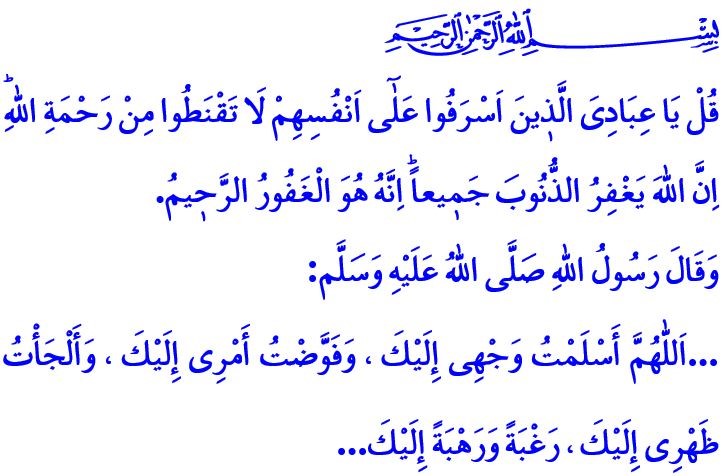 بِسْمِ اللهِ الرَّحْمٰنِ الرَّحِيمِ
قُلْ يَا عِبَادِىَ الَّذ۪ينَ اَسْرَفُوا عَلٰٓى اَنْفُسِهِمْ لَا تَقْنَطُوا مِنْ رَحْمَةِ اللهِۜ
اِنَّ اللهَ يَغْفِرُ الذُّنُوبَ جَم۪يعاًۜ اِنَّهُ هُوَ الْغَفُورُ الرَّح۪يمُ.
وَقَالَ رَسُولُ اللهِ صَلَّى اللهُ عَلَيْهِ وَسَلَّم:
...اَللّٰهُمَّ أَسْلَمْتُ وَجْهِى إِلَيْكَ ، وَفَوَّضْتُ أَمْرِى إِلَيْكَ ، وَأَلْجَأْتُ
ظَهْرِى إِلَيْكَ ، رَغْبَةً وَرَهْبَةً إِلَيْكَ...